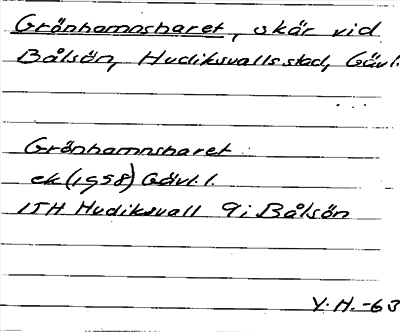 Grönhamnsharet, skär vid
Bålsön, Hudiksvalls stad, Gävl.
Grönhamnsharet
ek (1958) Gävl.l.
ITH Hudiksvall 9i Bålsön
Y.H. -63